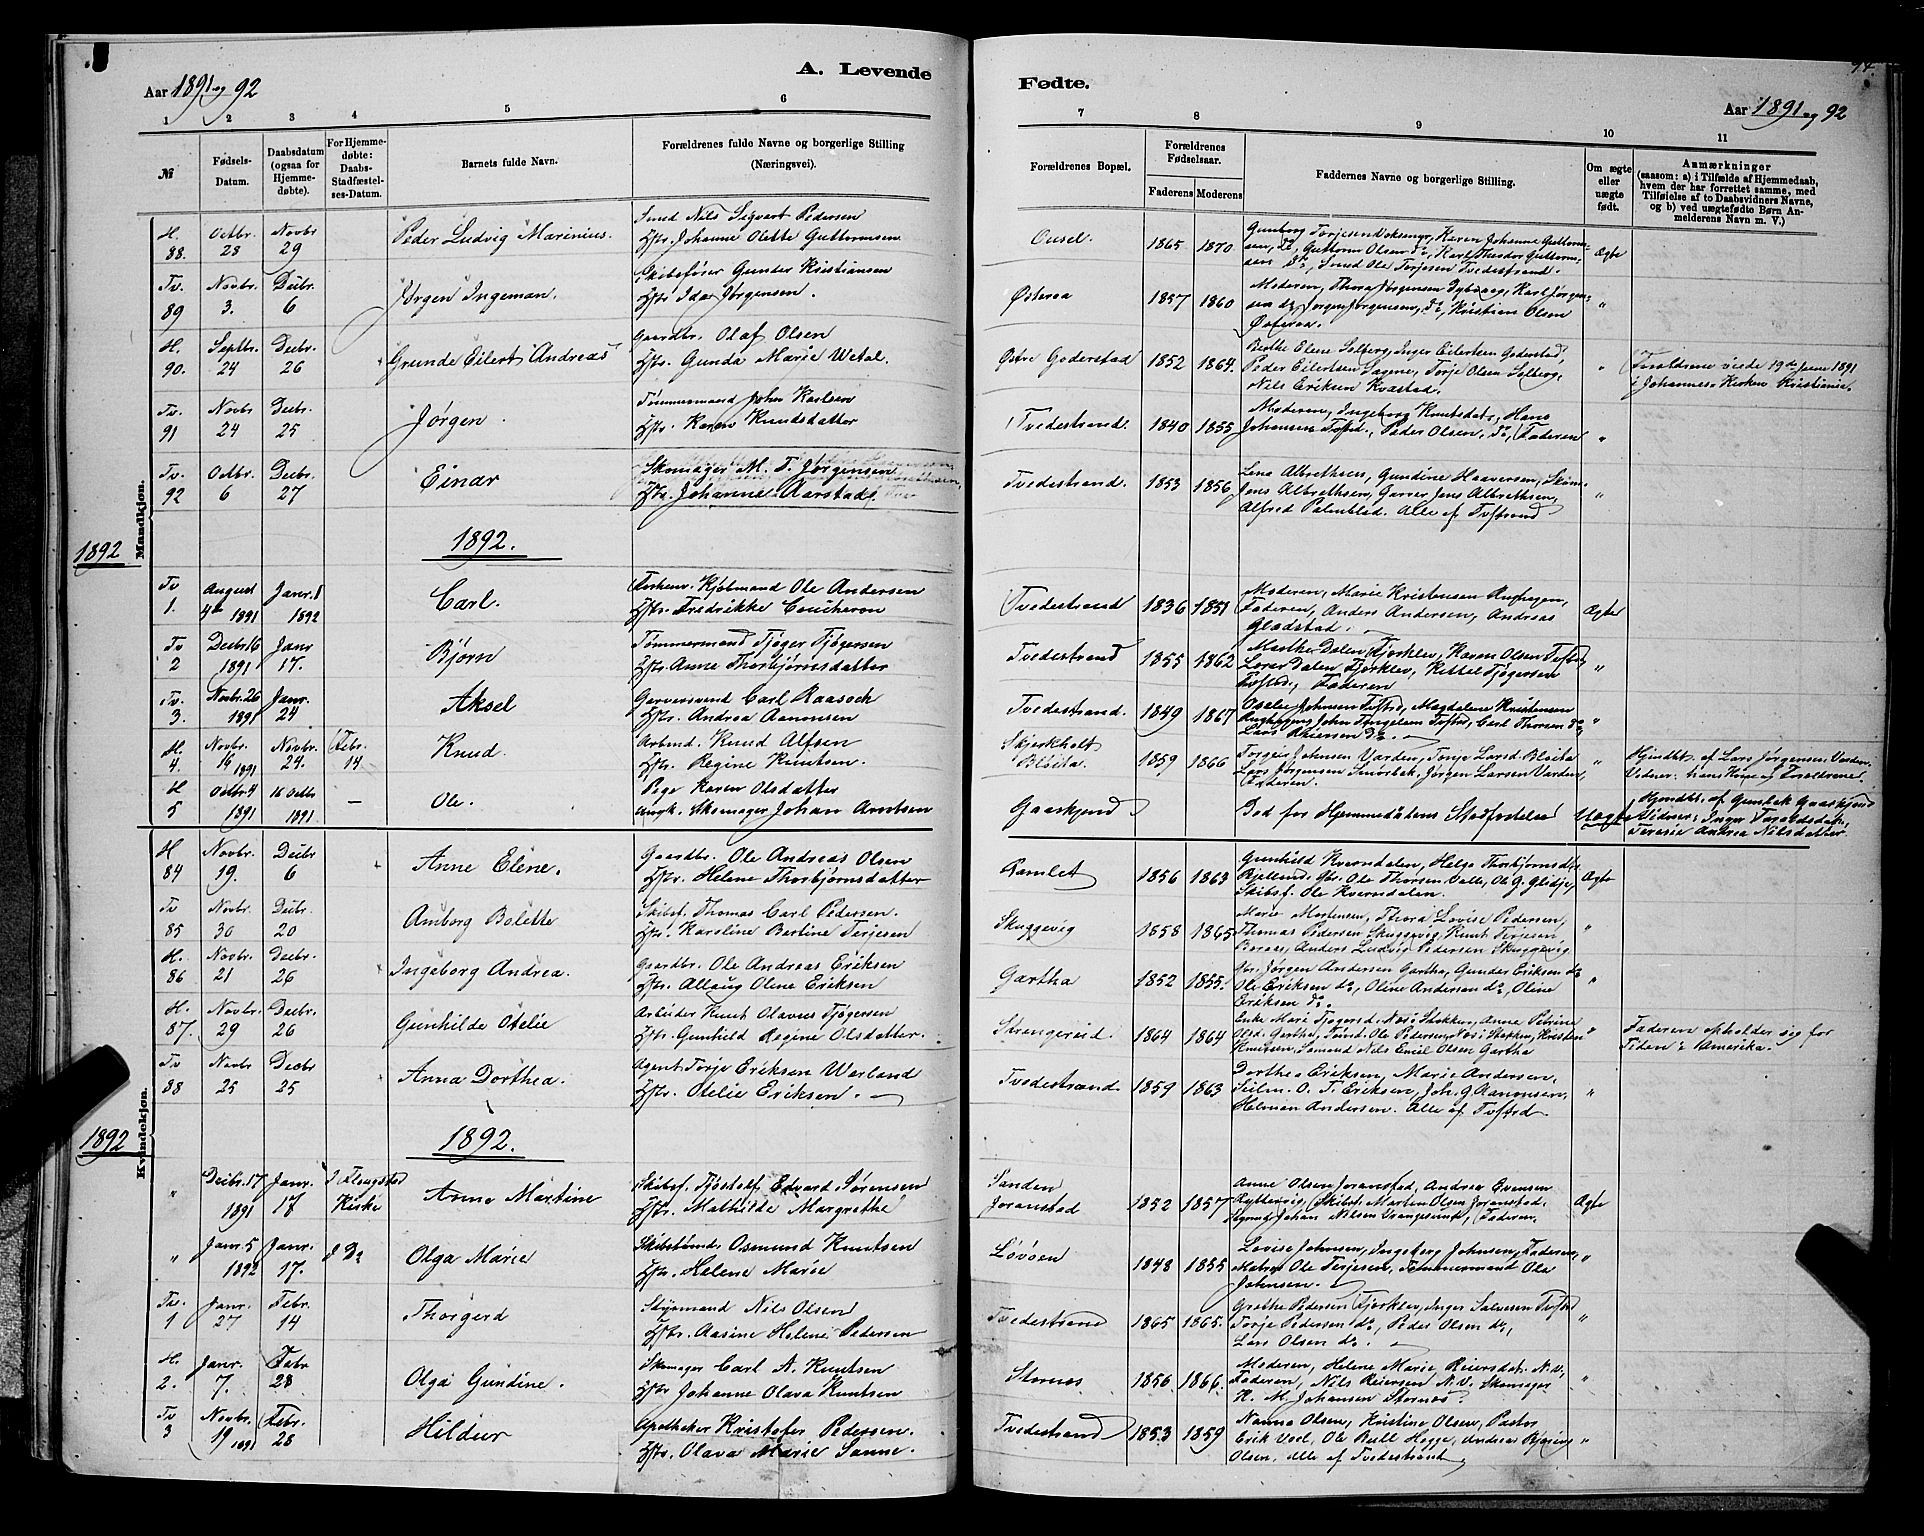 A. Levende
Fødte.
Aar 1891 og 92
Aar 1891 og 92
1 2 3 4 5 6
7 8 9 10 11
№
Fødsels-
Datum.
Daabsdatum
(ogsaa for
Hjemme-
døbte).
For Hjemme-
døbte:
Daabs-
Stadfæstel-
ses-Datum.
Barnets fulde Navn.
Forældrenes fulde Navne og borgerlige Stilling
(Næringsvei).
Forældrenes Bopæl.
Forældrenes
Fødselsaar.
Faderens Moderens
Faddernes Navne og borgerlige Stilling.
Om ægte
eller
uægte
født.
Anmærkninger
(saasom: a) i Tilfælde af Hjemmedaab,
hvem der har forrettet samme, med
Tilføielse af to Daabsvidners Navne,
og b) ved uægtefødte Børn An-
melderens Navn m. V.)
Mandkjøn.
H. 88. Octbr. 28 Novbr 29
Peder Ludvig Marinius.
Smed Nils Sigvart Pedersen
Hstr. Johanne Olette Guttormsen
Ousel. 1865 1870
Ægte
Tv. 89 Novbr. 3. Decbr. 6
Jørgen Ingeman.
Skibsfører Gunder Kristiansen
Hstr. Ida Jørgensen.
Østeraa 1857 1860
Moderen, Thora Jørgensen Dybvaag, Karl Jørgen-
sen do, Jørgen Jørgensen, do, Kristian Olsen
Østeraa. "
H. 90. Septbr. 24 Decbr. 26
Grunde Eilert Andreas
Gaardbr. Olaf Olsen
Hstr. Gunda Marie Wetal.
Østre Goderstad 1852 1864.
Berthe Elene Solberg, Inger Eilertsen Goderstad,
Peder Eilertsen Sagene, Torje Olsen Solberg,
Nils Eriksen Kvastad. "
Forældrene viede 19de Juni 1891
i Johannes Kirken Kristiania.
Tv. 91 Novbr 24 Decbr. 25
Jørgen.
Tømmermand John Karlsen
Hstr. Karen Knudsdatter
Tvedestrand. 1840 1855
Moderen, Ingeborg Knutsdat., Hans
Johansen Tvfstd., Peder Olsen, do, Faderen "
Tv. 92 Octbr. 6 Decbr. 27
Einar
Skomager M. T. Jørgensen
Hstr. Johanne Aarstad
Tvedestrand. 1853 1856
Lena Albrethsen, Gundine Haaversen,
Jens Albrethsen, Garver Jens Albrethsen,
Alfred Palmblad. Alle af Tvfstrand "
1892
1892.
Tv 1. August 4de 1891 Janr. 1 1892
Carl.
Forhenv. Kjøbmand Ole Andersen
Hstr. Fredrikke Coucheron
Tvedestrand 1836 1851
Moderen, Marie Kristensen
Faderen, Anders Andersen, Andreas
Gladstad. Ægte
Tv 2 Decbr. 16 1891 Janr 17.
Bjørn
Tømmermand Tjøger Tjøgersen
Hstr. Anne Thorbjørnsdatter
Tvedestrand 1855 1862
Marthe Dalen Fjorklev, Karen Olsen Tvfstd,
Lars Dalen Fjorklev, Kittel Tjøgersen
Tvfstd, Faderen "
Tv. 3. Novbr. 26 1891 Janr. 24
Aksel
Garversvend Carl Raasoch
Hstr. Andrea Aanonsen
Tvedestrand. 1849 1867 "
H. 4. Novbr. 16 1891 Novbr. 24. Febr. 14
Knud.
Arbmd. Knud Alfsen
Hstr. Regine Knutsen
Skjerkholt
Bleita. 1859 1866
Torger Johnsen Varden, Torje Larsd. Bleita
Lars Jørgensen Smørbæk, Jørgen Larsen Varden,
Faderen. "
Hjmdbt. af Lars Jørgensen Varden.
Vidner: hans Kone og Forældrene
H 5 Octbr 4 1891 16 Octbr 1891 —
Ole.
Pige Karen Olsdatter
Ungk. Skomager Johan Arntsen
Gaaskjend
Død før Hjemmedaabens Stadfestelse Uægte
Hjmdbt. af Gunbek Gaaskjend
Vidner: Inger Taraldsdat.,
Terese Andrea Nilsdatter.
Kvindekjøn.
H 84 Novbr. 19. Decbr 6
Anne Elene.
Gaardbr. Ole Andreas Olsen
Hstr. Helene Thorbjørnsdatter
Ramlet 1856 1863
Gunhild Kverndalen, Helga Thorbjørnsd.
Bjelland, Gbr. Ole Thorsen Valle, Ole G. Glidje,
Skibsf. Ole Kverndalen. Ægte
Tv 85 Novbr. 30 Decbr. 20
Amborg Bolette
Skibsf. Thomas Carl Pedersen.
Hstr. Karoline Bertine Terjesen
Skuggevig 1858 1865
Marie Mortensen, Thora Lovise Pedersen,
Thomas Pedersen Skuggevig, Knut Terjesen
Boraas, Anders Ludvig Pedersen Skuggevig "
H. 86 Novbr. 21 Decbr. 26
Ingeborg Andrea.
Gaardbr. Ole Andreas Eriksen
Hstr. Allaug Oline Eriksen
Gartha 1852 1855.
Gbr. Jørgen Andersen Gartha, Gunder Eriksen do
Ole Eriksen do, Oline Andersen do, Oline
Eriksen do. "
H. 87. Novbr. 29 Decbr. 26
Gunhilde Otelie
Arbeider Knut Olavus Tjøgersen
Hstr. Gunhild Regine Olsdatter.
Strengereid. 1864 1864 "
Faderen opholder sig for
Tiden i Amerika.
Tv 88 Novbr 25 Decbr 25
Anna Dorthea.
Agent Torje Eriksen Værland
Hstr. Otelie Eriksen.
Tvedestrand 1859 1863
Dorthea Eriksen, Marie Andersen,
Seilm. O. T. Eriksen, Joh. G. Aanonsen,
Herman Andersen. Alle af Tvfstrd "
1892
1892.
" Decbr. 17 1891 Janr. 17 I Flougstad Kirke
Anna Martine
Skibsf. Tjøstolf Edvard Sørensen
Hstr. Mathilde Margrethe
Sanden
Joranstad 1852 1857
Anne Olsen Joranstad, Andrea Evensen
Ryttervig, Skibsf. Martin Olsen Joranstad.
Styrmd Johan Nilsen Vrangesund, Faderen. Ægte
" Janr. 5 1892 Janr. 17. I Do
Olga Marie
Skibstømd. Osmund Knutsen
Hstr. Helene Marie
Løvøen 1848 1855
Lovise Johnsen, Ingeborg Johnsen, Faderen,
Matros Ole Terjesen, Tømmermand Ole
Johnsen. "
Tv. 1 Janr. 27 Febr. 14
Thorgerd
Styrmand Nils Olsen
Hstr. Aasine Helene Pedersen
Tvedestrand 1865 1865.
Grethe Pedersen Fjorklev, Inger Salvesen Tvfstd
Torje Pedersen do, Peder Olsen do,
Lars Olsen do. "
H. 2. Janr. 7. Febr 28
Olga Gundine.
Skomager Carl A. Knutsen
Hstr Johanne Olava Knutsen
Stornes 1856. 1866.
Moderen, Helene Marie Reiersdat. N.V.,
Faderen, Nils Reiersen N.V. Skomager
K. M. Johansen Stornes. "
Tv 3 Novbr. 19 1891 Febr. 28
Hildur
Apotheker Kristofer Pedersen
Hstr. Olava Marie Sanne.
Tvedestrand 1853 1859
Nanna Olsen, Kristine Olsen, Pastor
Erik Voel, Ole Bull Hegge, Andreas
Olsen, alle af Tvedestrand "